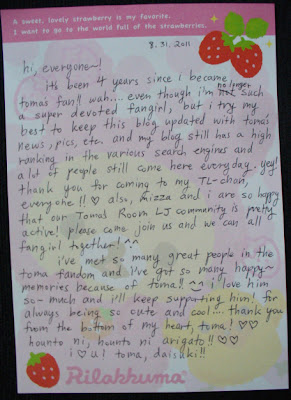 A sweet, lovely strawberry is my favorite.
I want to go to the world full of the strawberries.
8.31.2011
hi, everyone~!
it's been 4 years since i became
toma's fan!! wah.... even though i'm no longer such
a super devoted fangirl, but i try my
best to keep this blog updated with toma's
news, pics, etc. and my blog still has a high
ranking in the various search engines and
a lot of people still come here everyday. yey!
thank you for coming to my TL-chan,
everyone!! ♡ also, Rizza and i are so happy
that our Toma's Room LJ community is pretty
active! please come join us and we can all
fangirl together! ^^
i've met so many great people in the
toma fandom and i've got so many happy~
memories because of toma!! ^^ i love him
so~ much and i'll keep supporting him! for
always being so cute and cool.... thank you
from the bottom of my heart, toma! ♡♡
hounto ni, hounto ni arigato!! ♡♡
i ♡ u! toma, daisuki!!
Rilakkuma®